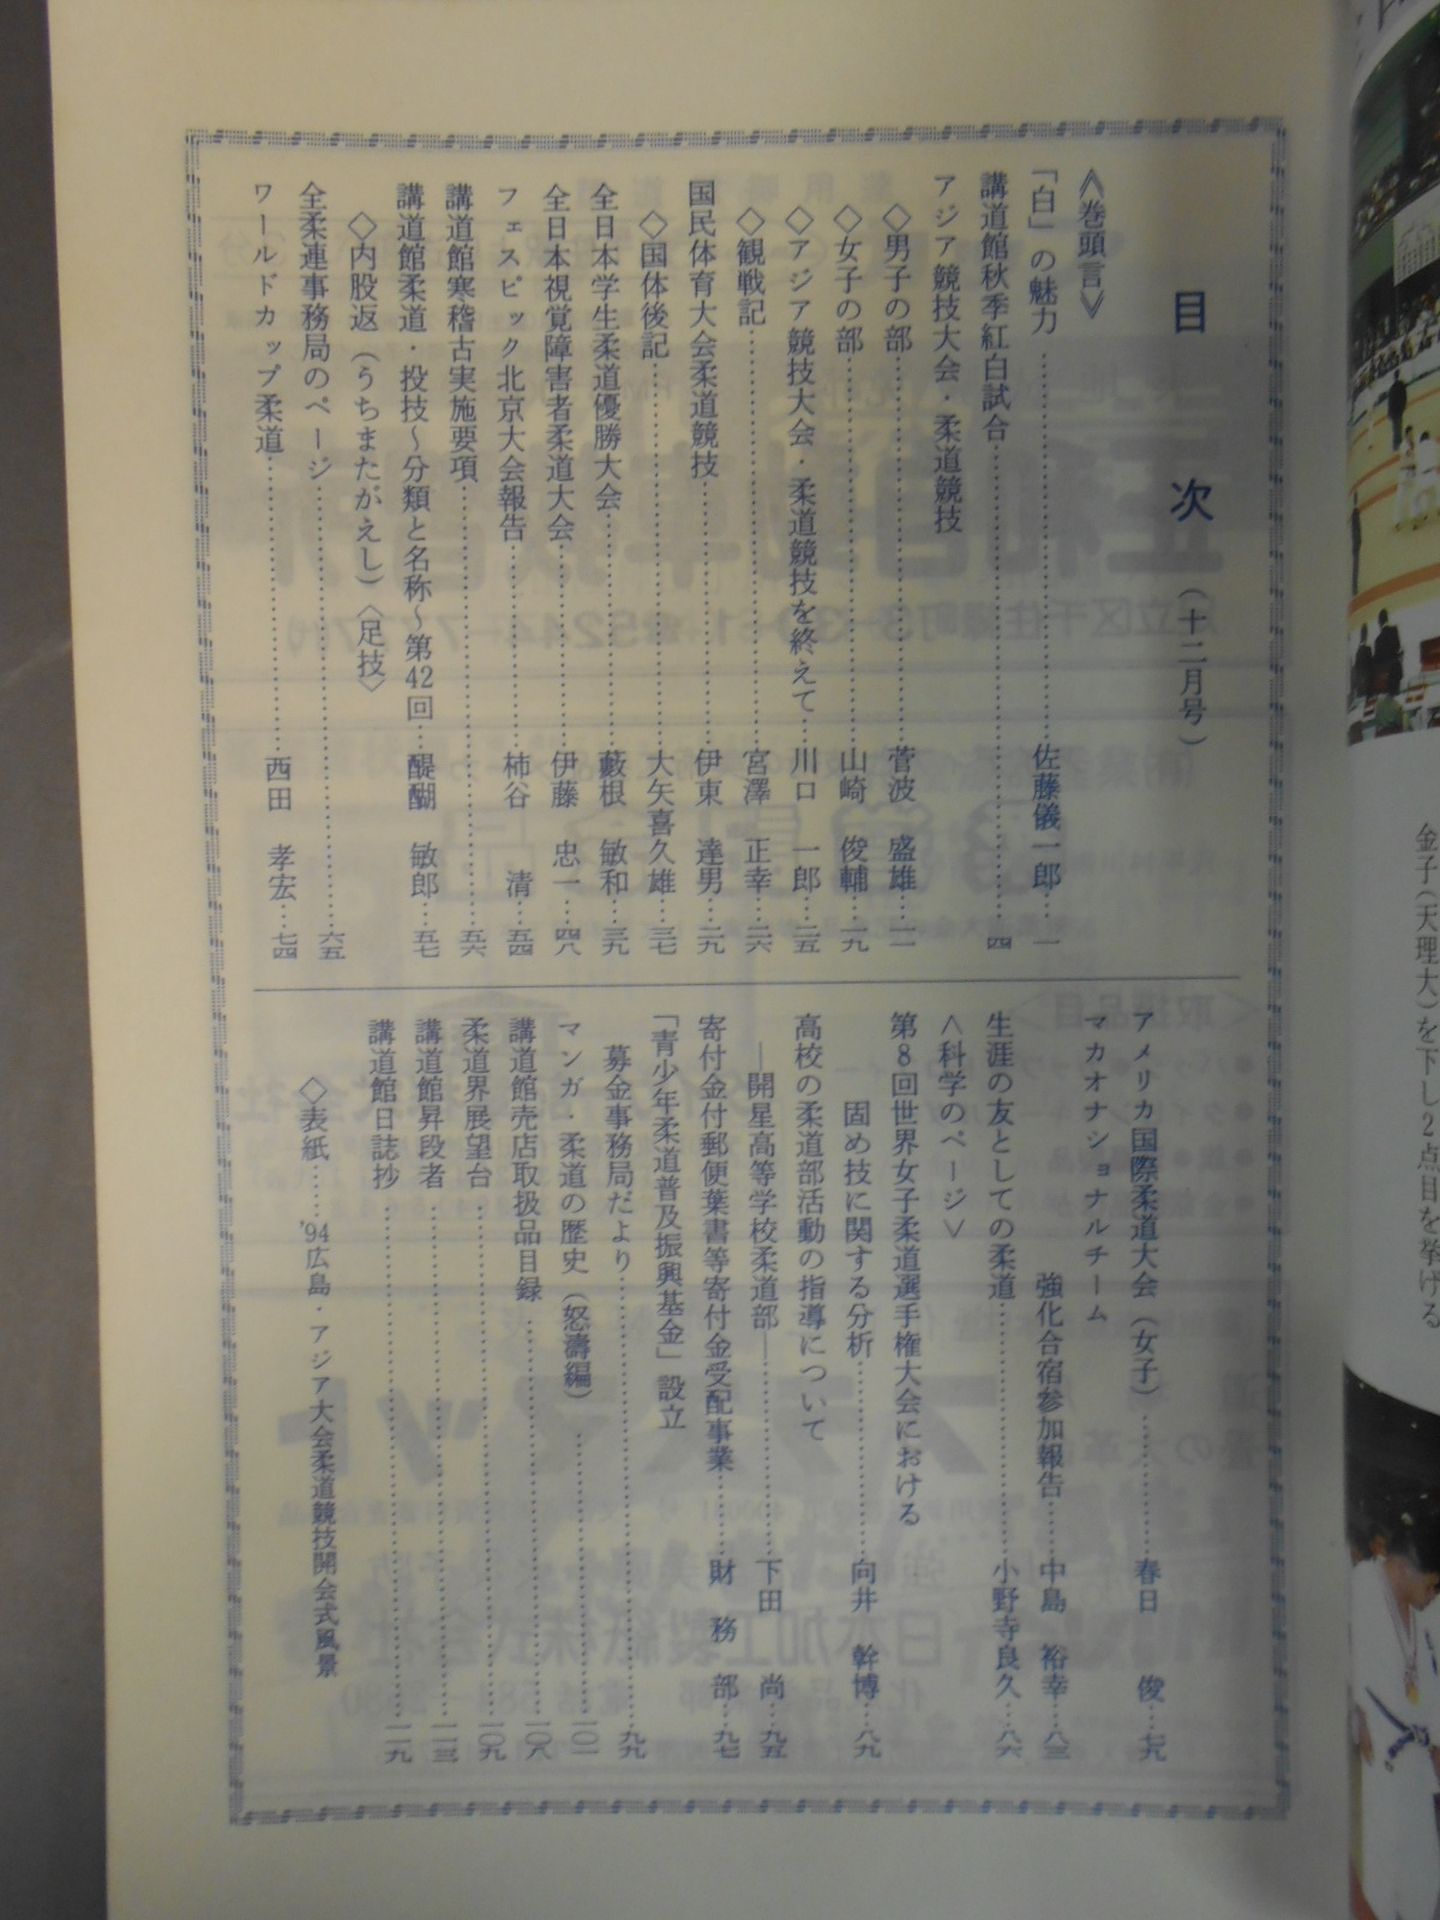 目次（十二月号）
≪巻頭言≫
「白」の魅力……佐藤儀一郎……一
講道館秋季紅白試合……四
アジア競技大会・柔道競技
◇男子の部……菅波　盛雄……一一
◇女子の部……山崎　俊輔……一九
◇アジア競技大会・柔道競技を終えて……川口　一郎……二五
◇観戦記……宮澤　正幸……二六
国民体育大会柔道競技……伊東　達男……二九
◇国体後記……大矢喜久雄……三七
全日本学生柔道優勝大会……藪根　敏和……三九
全日本視覚障害者柔道大会……伊藤　忠一……四八
フェスピック北京大会報告……柿谷　清……五四
講道館寒稽古実施要項……五六
講道館柔道・投技～分類と名称～第42回……醍醐　敏郎……五七
◇内股返（うちまたがえし）〈足技〉
全柔連事務局のページ……六五
ワールドカップ柔道……西田　孝宏……七四
アメリカ国際柔道大会（女子）……春日　俊……七九
マカオナショナルチーム
強化合宿参加報告……中島　裕幸……八三
生涯の友としての柔道……小野寺良久……八六
＜科学のページ＞
第8回世界女子柔道選手権大会における
固め技に関する分析……向井　幹博……八九
高校の柔道部活動の指導について
―開星高等学校柔道部―……下田　尚……九五
寄付金付郵便葉書等寄付金受配事業……財務部……九七
「青少年柔道普及振興基金」設立
募金事務局だより……九九
マンガ・柔道の歴史（怒濤編）……一〇一
講道館売店取扱品目録……一〇八
柔道界展望台……一〇九
講道館昇段者……一一三
講道館日誌抄……一一九
◇表紙……'94広島・アジア大会柔道競技開会式風景
金子（天理大）を下し2点目を挙げる